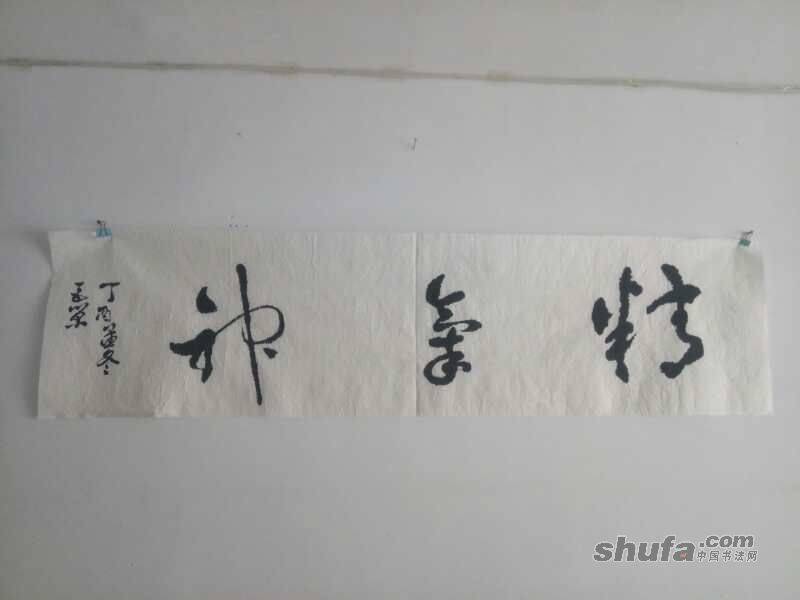 精氣神
丁酉孟冬
shufa.com
中国书法网